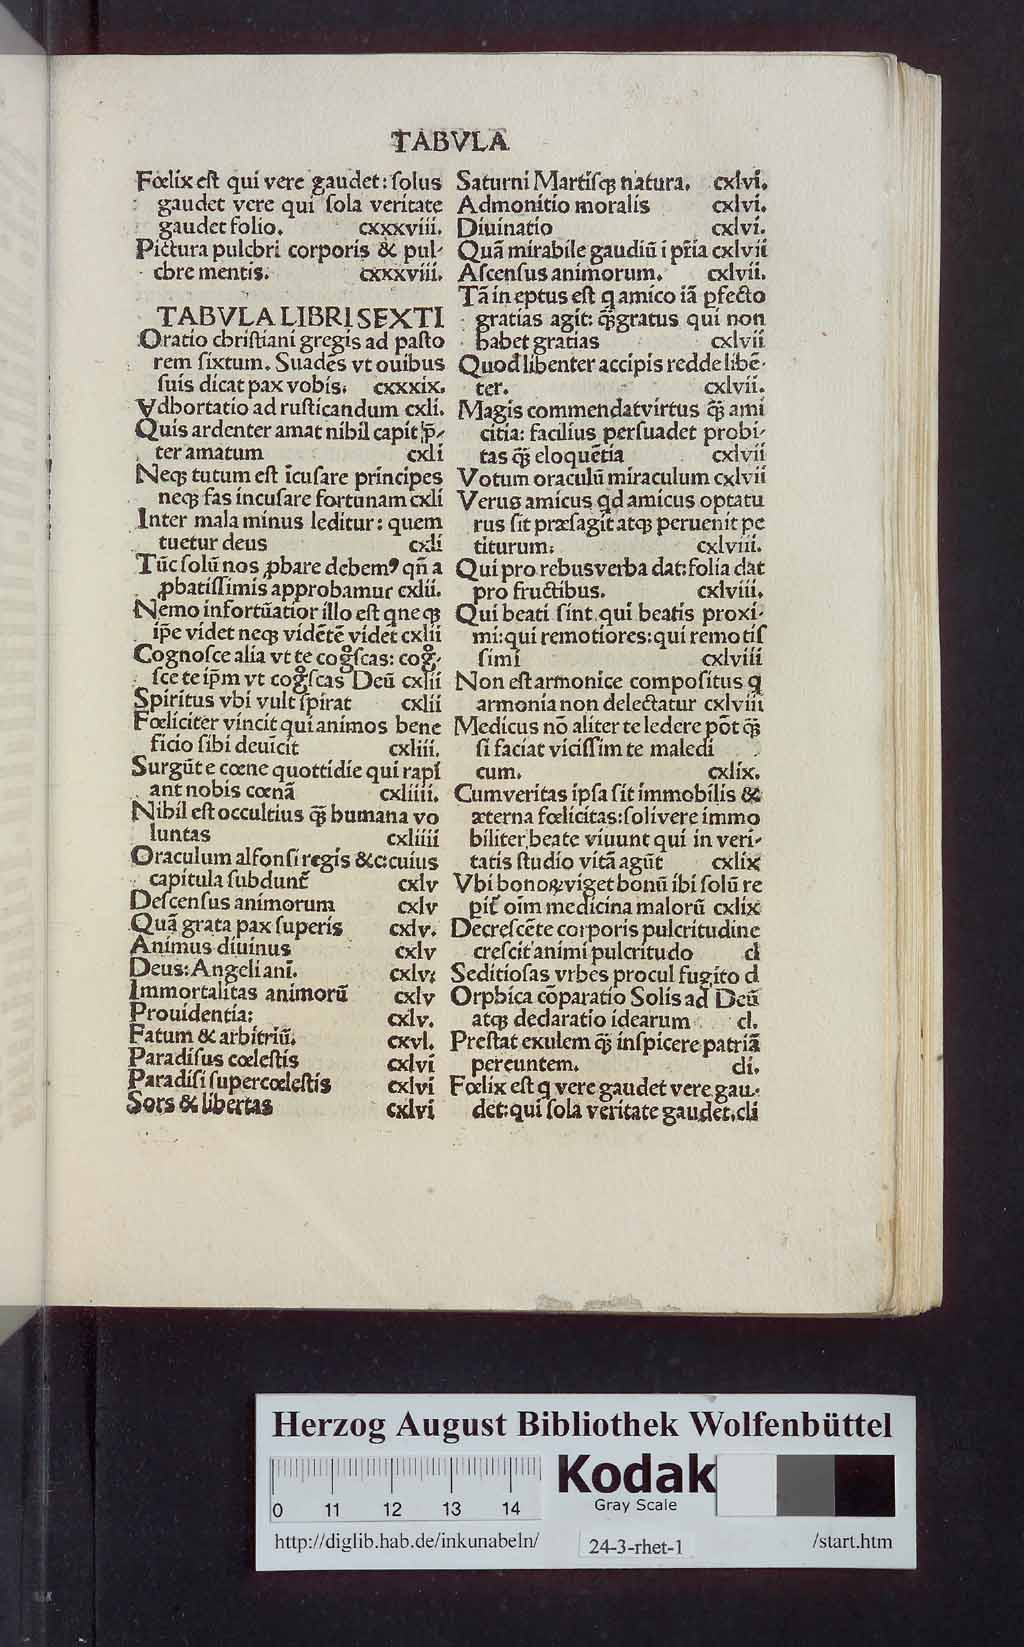 TABVLA
Fœlix eſt qui vere gaudet: ſolus
gaudet vere qui ſola veritate
gaudet ſolio. cxxxviii.
Pictura pulchri corporis & pul-
chre mentis. cxxxviii.
TABVLA LIBRI SEXTI
Oratio chriſtiani gregis ad paſto
rem ſixtum. Suadēs vt ouibus
ſuis dicat pax vobis. cxxxix.
Adhortatio ad ruſticandum cxli.
Quis ardenter amat nihil capit p̄-
ter amatum cxli
Neqꝫ tutum eſt īcuſare principes
neqꝫ fas incuſare fortunam cxli
Inter mala minus leditur: quem
tuetur deus cxli
Tūc ſolū nos ꝓbare debemꝰ qn̄ a
ꝓbatiſſimis approbamur cxlii.
Nemo infortūatior illo eſt q neqꝫ
ip̄e videt neqꝫ vidētē videt cxlii
Cognoſce alia vt te cogͦſcas: cogͦ-
ſce te ip̄m vt cogͦſcas Deū cxlii
Spiritus vbi vult ſpirat cxlii
Fœliciter vincit qui animos bene
ficio ſibi deuīcit cxliii.
Surgūt e cœne quottidie qui rapī
ant nobis cœnā cxliiii.
Nihil eſt occultius qꝫ̄ humana vo
luntas cxliiii
Oraculum alfonſi regis &c: cuius
capitula ſubdunt̄ cxlv
Deſcenſus animorum cxlv
Quā grata pax ſuperis cxlv.
Animus diuinus cxlv
Deus: Angeli anī. cxlv:
Immortalitas animorū cxlv
Prouidentia: cxlv.
Fatum & arbitriū. cxvl.
Paradiſus cœleſtis cxlvi
Paradiſi ſupercœleſtis cxlvi
Sors & libertas cxlvi
Saturni Martiſqꝫ natura. cxlvi.
Admonitio moralis cxlvi.
Diuinatio cxlvi.
Quā mirabile gaudiū i pr̄ia cxlvii
Aſcenſus animorum. cxlvii.
Tā ineptus eſt q amico iā ꝑfecto
gratias agit: qꝫ̄ gratus qui non
habet gratias cxlvii
Quod libenter accipis redde libē-
ter. cxlvii.
Magis commendat virtus qꝫ̄ ami
citia: facilius perſuadet probi-
tas qꝫ̄ eloquētia cxlvii
Votum oraculū miraculum cxlvii
Verus amicus qd amicus optatu
rus ſit præſagit atqꝫ peruenit pe
titurum: cxlviii.
Qui pro rebus verba dat: folia dat
pro fructibus. cxlviii.
Qui beati ſint qui beatis proxi-
mi: qui remotiores: qui remotiſ
ſimi cxlviii
Non eſt armonice compoſitus q
armonia non delectatur cxlviii
Medicus nō aliter te ledere pōt qꝫ̄
ſi faciat viciſſim te maledi
cum. cxlix.
Cum veritas ipſa ſit immobilis &
æterna fœlicitas: ſoli vere immo
biliter beate viuunt qui in veri-
tatis ſtudio vitā agūt cxlix
Vbi bonoꝝ viget bonū ibi ſolū re
pit̄ oīm medicina malorū cxlix
Decreſcēte corporis pulcritudine
creſcit animi pulcritudo cl
Seditioſas vrbes procul fugito cl
Orphica cōparatio Solis ad Deū
atqꝫ declaratio idearum cl.
Preſtat exulem qꝫ̄ inſpicere patriā
pereuntem. cli.
Fœlix eſt q vere gaudet vere gau-
det: qui ſola veritate gaudet. cli
Herzog August Bibliothek Wolfenbüttel
0 11 12 13 14
Kodak
Gray Scale
http://diglib.hab.de/inkunabeln/ 24-3-rhet-1 /start.htm